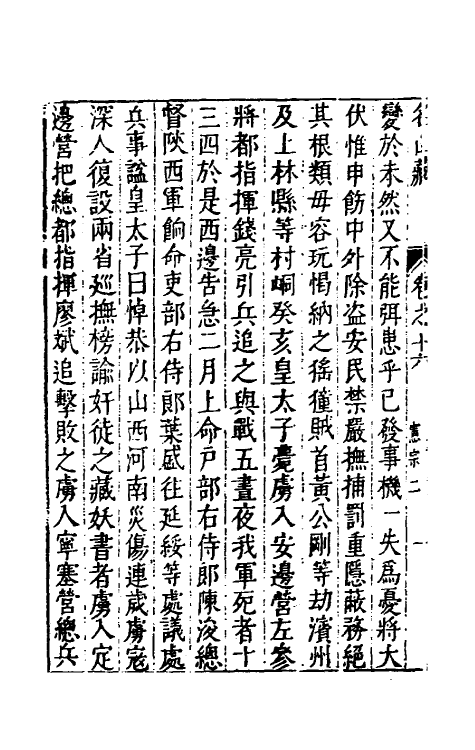 名山藏 卷之十六 憲宗二 一
變於未然又不能弭患乎已發事機一失爲憂將大
伏惟申飭中外除盗安民禁嚴撫捕罰重隱蔽務絕
其根類毋容玩愒納之徭獞賊首黃公剛等劫濱州
及上林縣等村峒癸亥皇太子薨虜入安邊營左參
將都指揮錢亮引兵追之與戰五晝夜我軍死者十
三四於是西邊告急二月上命戶部右侍郎陳浚總
督陜西軍餉命吏部右侍郎葉盛往延綏等處議處
兵事諡皇太子曰悼恭以山西河南災傷連歲虜寇
深入復設兩省廵撫榜諭奸徒之藏妖書者虜入定
邊營把總都指揮廖斌追擊敗之虜入寧塞營總兵